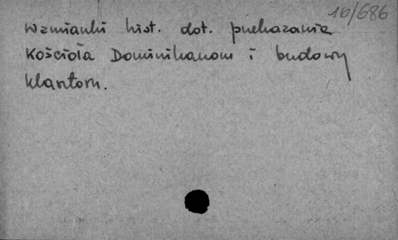 10/686
Wzmianki hist. dot. przekazania
Kościoła Dominikanom i budowy
klasztoru.